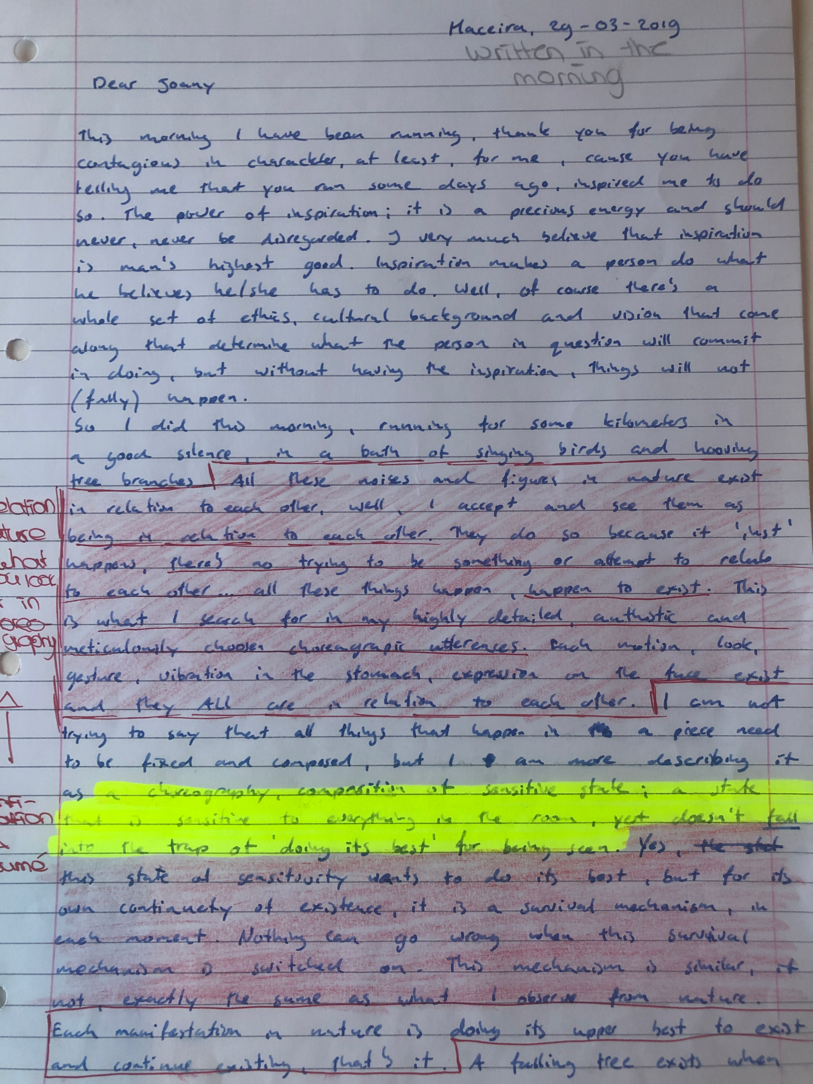 Maceira, 29-03-2019
written in the
morning
Dear Joany
This morning I have been running, thank you for being
contagious in charackter, at least, for me, cause you have
telling me that you run some days ago, inspired me to do
so. The power of inspiration; it is a precious energy and should
never, never be disregarded. I very much believe that inspiration
is man's highest good. Inspiration makes a person do what
he believes he/she has to do. Well, of course there's a
whole set of ethics, cultural background and vision that come
along that determine what the person in question will commit
in doing, but without having the inspiration, things will not
(fully) happen.
So I did this morning, running for some kilometers in
a good silence, in a bath of singing birds and hooving
tree branches. All these noises and figures in nature exist
in relation to each other, well, I accept and see them as
being in relation to each other. They do so because it 'just'
happens, there's no trying to be something or attempt to relate
to each other... all these things happen, happen to exist. This
is what I search for in my highly detailed, authistic and
meticulously choosen choreograpic utterences. Each motion, look,
gesture, vibration in the stomach, expression on the face exist
and they All are in relation to each other. I am not
trying to say that all things that happen in a piece need
to be fixed and composed, but I am more describing it
as a choreography, composition of sensitive state; a state
that is sensitive to everything in the room, yet doesn't fall
into the trap of 'doing its best' for being seen. Yes,
this state of sensitivity wants to do its best, but for its
own continuety of existence, it is a survival mechanism, in
each moment. Nothing can go wrong when this survival
mechanism is switched on. This mechanism is similar, if
not, exactly the same as what I observe from nature.
Each manifestation in nature is doing its upper best to exist
and continue existing, that's it. A falling tree exists when
elation
ture
what
ou look
r in
oreo-
graphy
ation
sumé